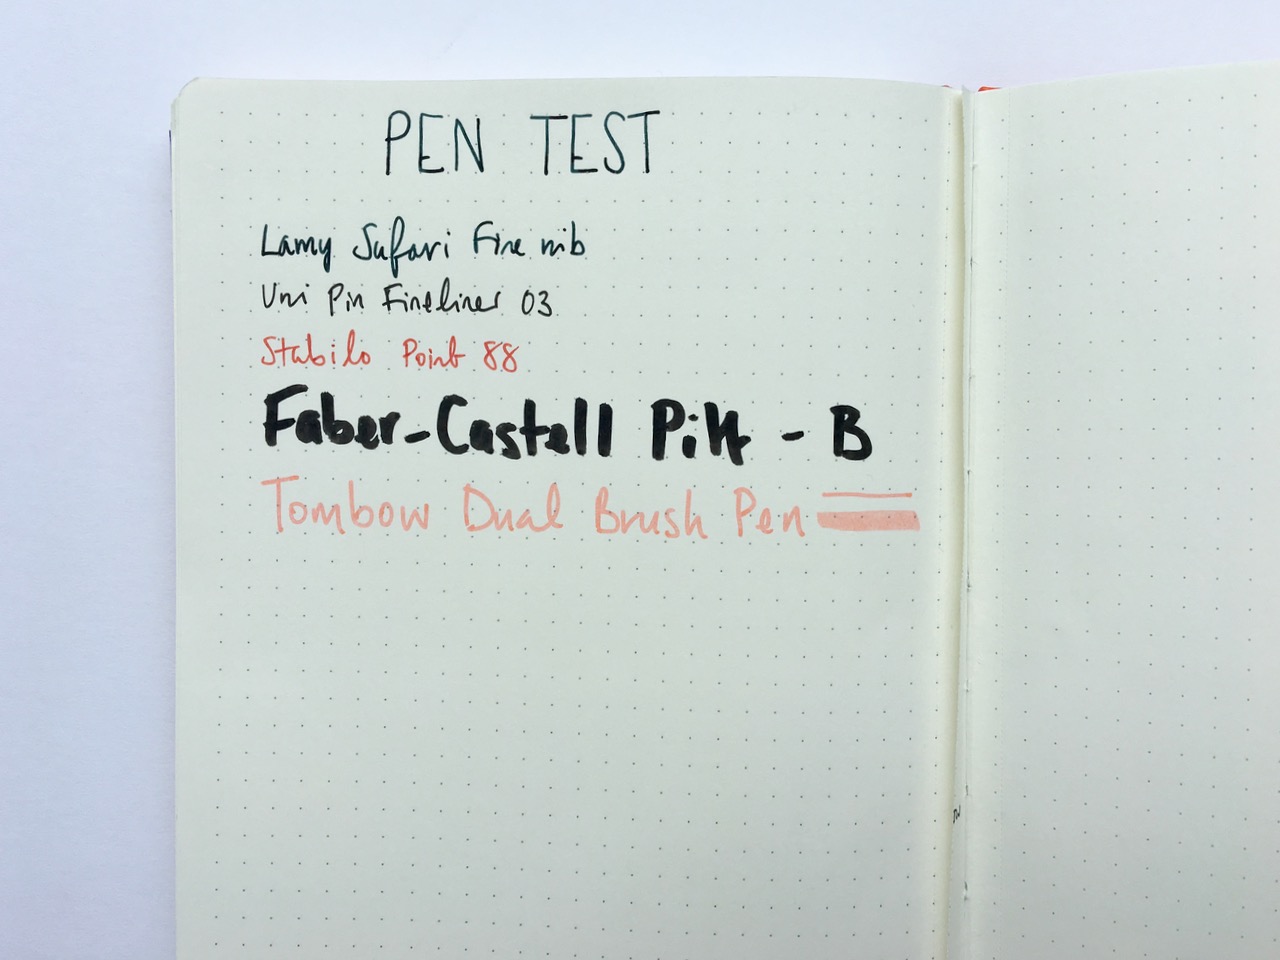 PEN TEST
Lamy Safari Fine nib
Uni Pin Fineliner 03
Stabilo Point 88
Faber-Castell Pitt - B
Tombow Dual Brush Pen